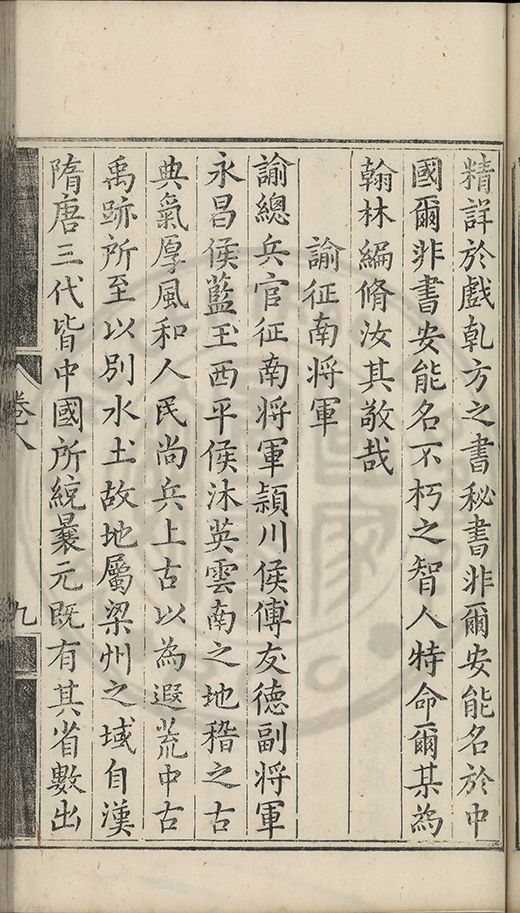 精詳於戲乹方之書秘書非爾安能名於中
國爾非書安能名不朽之智人特命爾某為
翰林編脩汝其敬哉
諭征南將軍
諭總兵官征南將軍潁川侯傅友德副將軍
永昌侯藍玉西平侯沐英雲南之地稽之古
典氣厚風和人民尚兵上古以為遐荒中古
禹跡所至以別水土故地屬梁州之域自漢
隋唐三代皆中國所統曩元既有其省數出
卷八
九